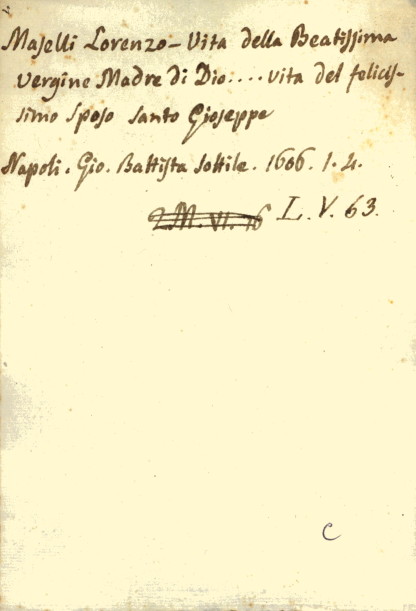 Maselli Lorenzo - Vita della Beatissima
Vergine Madre di Dio.... vita del felicis-
simo Sposo Santo Gioseppe
Napoli. Gio. Battista Sottile. 1606. 1. 4.
2.M.VI.16 L. V. 63.
C